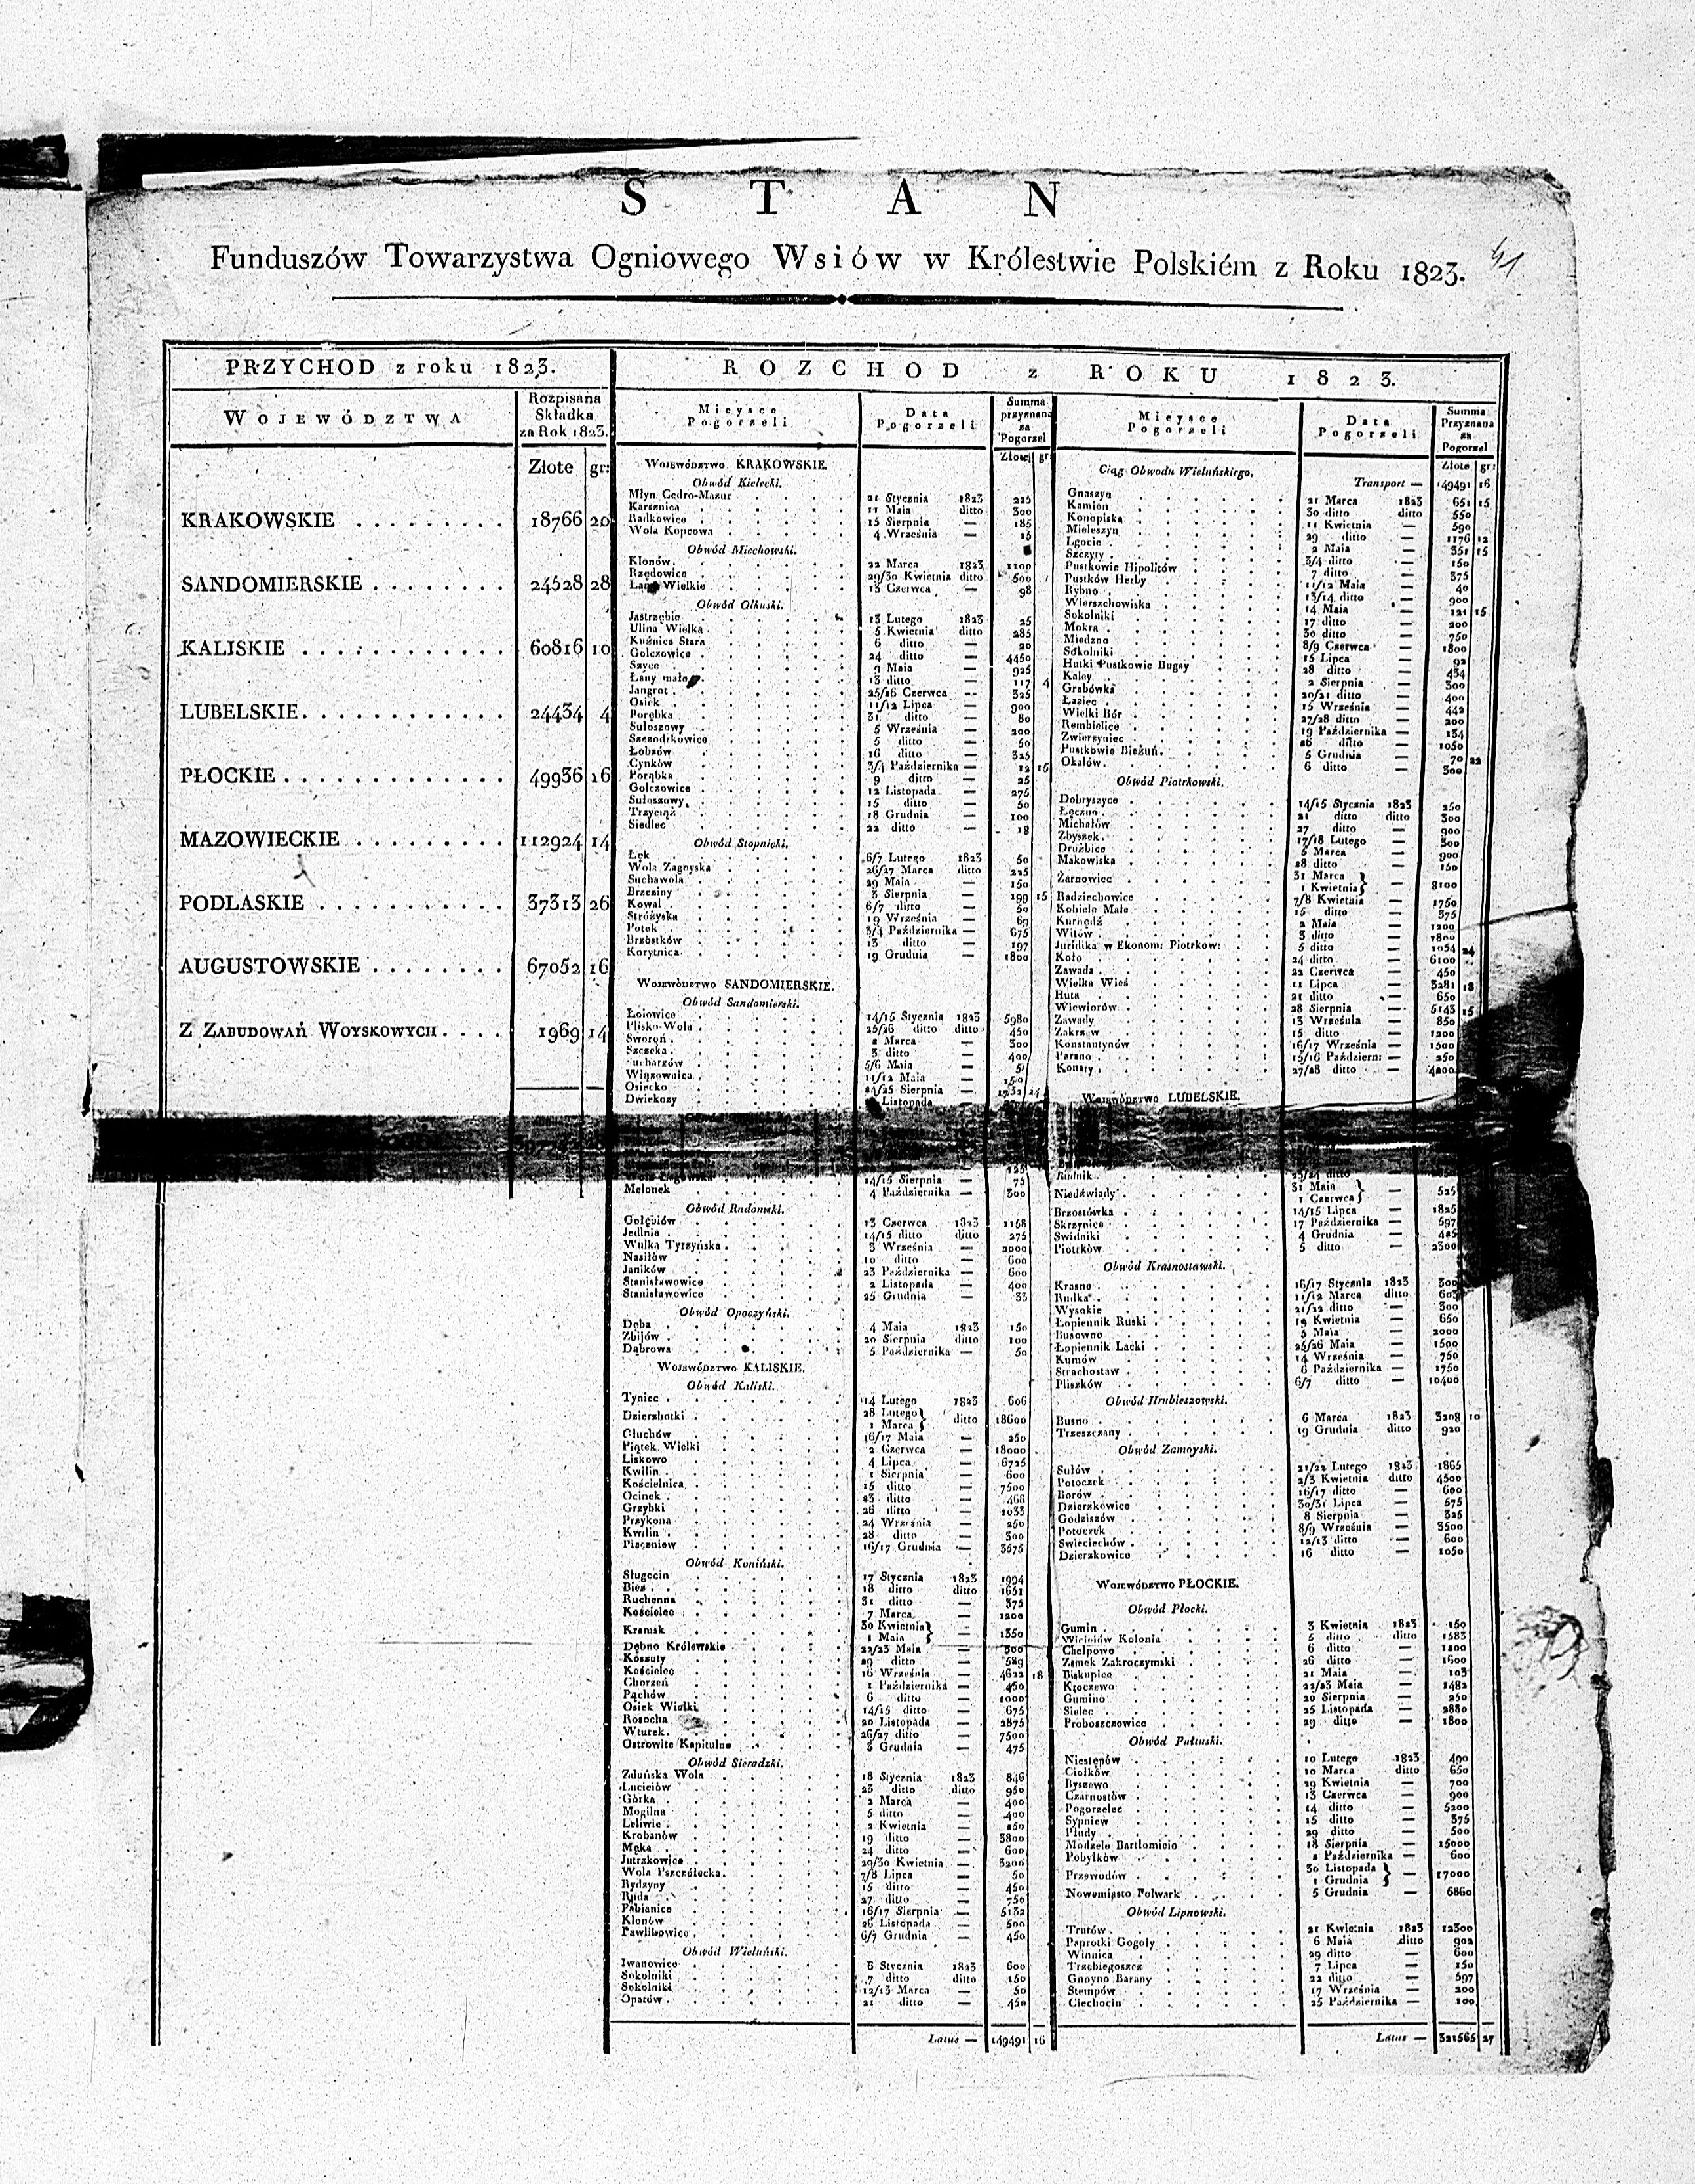 S T A N
Funduszów Towarzystwa Ogniowego Wsiów w Królestwie Polskiém z Roku 1823.
41
PRZYCHOD z roku 1823.
WOJEWÓDZTWA
Rozpisana Składka za Rok 1823.
Złote gr:
KRAKOWSKIE . . . . . . . . . 18766 20
SANDOMIERSKIE . . . . . . . . 24528 28
KALISKIE . . . . . . . . . . . . 60816 10
LUBELSKIE . . . . . . . . . . . . 24434 4
PŁOCKIE . . . . . . . . . . . . . 49936 16
MAZOWIECKIE . . . . . . . . . 112924 14
PODLASKIE . . . . . . . . . . . 37313 26
AUGUSTOWSKIE . . . . . . . . 67052 16
Z ZABUDOWAŃ WOYSKOWYCH . . . . 1969 14
ROZCHOD z ROKU 1823.
Mieysce Pogorzeli
Data Pogorzeli
Summa przyznana za Pogorzel
Złote gr:
WOJEWÓDZTWO KRAKOWSKIE.
Obwód Kielecki.
Młyn Cedro-Mazur 21 Stycznia 1823 225
Karsznica 11 Maia ditto 300
Radkowice 15 Sierpnia — 185
Wola Kopcowa 4 Września — 15
Obwód Miechowski.
Klonów 22 Marca 1823 1100
Rzędowice 29/30 Kwietnia ditto 500
Wielkie 15 Czerwca — 98
Obwód Olkuski.
Jastrzębie 13 Lutego 1823 25
Ulina Wielka 5 Kwietnia ditto 285
Kuźnica Stara 6 ditto — 20
Golczowice 24 ditto — 4450
Szyce 9 Maia — 925
Łany małe 13 ditto — 117 4
Jangrot 25/26 Czerwca — 325
Osiek 11/12 Lipca — 900
Porąbka 31 ditto — 80
Sułoszowy 5 Września — 200
Szczodrkowice 5 ditto — 50
Łobzów 16 ditto — 325
Cynków 3/4 Października — 12 15
Porąbka 9 ditto — 25
Golczowice 12 Listopada — 275
Sułoszowy 15 ditto — 50
Trzyciąż 18 Grudnia — 100
Siedlec 22 ditto — 18
Obwód Stopnicki.
Łęk 6/7 Lutego 1823 50
Wola Zagoyska 26/27 Marca ditto 225
Suchawola 29 Maia — 150
Brzeziny 3 Sierpnia — 199 15
Kowal 6/7 ditto — 50
Stróżyska 19 Września — 69
Potok 3/4 Października — 675
Brzostków 13 ditto — 197
Korytnica 19 Grudnia — 1800
WOJEWÓDZTWO SANDOMIERSKIE.
Obwód Sandomierski.
Łoiowice 14/15 Stycznia 1823 5980
Plisko-Wola 25/26 ditto ditto 450
Sworoń 2 Marca — 300
Szczeka 3 ditto — 400
5/6 Maia —
Wiązownica 11/12 Maia — 150
Osiecko 24/25 Sierpnia —
Dwiekozy Listopada —
14/15 Sierpnia — 75
Melonek 4 Października — 300
Obwód Radomski.
Gołębiów 13 Czerwca 1823 1158
Jedlnia 14/15 ditto ditto 275
Wulka Tyrzyńska 3 Września — 2000
Nasiłów 10 ditto — 600
Janików 23 Października — 600
Stanisławowice 2 Listopada — 400
Stanisławowice 25 Grudnia — 33
Obwód Opoczyński.
Dęba 4 Maia 1823 150
Zbijów 20 Sierpnia ditto 100
Dąbrowa 5 Października — 50
WOJEWÓDZTWO KALISKIE.
Obwód Kaliski.
Tyniec 14 Lutego 1823 606
Dzierzbotki 28 Lutego 1 Marca } ditto 18600
Głuchów 16/17 Maia — 250
Piątek Wielki 2 Czerwca — 18000
Liskowo 4 Lipca — 6725
Kwilin 1 Sierpnia — 600
Kościelnica 15 ditto — 7500
Ocinek 23 ditto — 466
Grzybki 26 ditto — 1033
Przykona 24 Września — 250
Kwilin 28 ditto — 300
Pieczniew 16/17 Grudnia — 3575
Obwód Koniński.
Sługocin 17 Stycznia 1823 1994
Biez 18 ditto ditto 1651
Ruchenna 31 ditto — 375
Kościelec 7 Marca — 1200
Kramsk 30 Kwietnia 1 Maia } — 1350
Dębno Królewskie 22/23 Maia — 300
Koszuty 29 ditto — 589
Kościelec 16 Września — 4622 18
Chorzeń 1 Października — 450
Pąchów 6 ditto — 1000
Osiek Wielki 14/15 ditto — 675
Rosocha 20 Listopada — 2875
Wturek 26/27 ditto — 7500
Ostrowite Kapitulne 3 Grudnia — 475
Obwód Sieradzki.
Zduńska Wola 18 Stycznia 1823 846
Łucieiów 23 ditto ditto 950
Górka 2 Marca — 400
Mogilna 5 ditto — 400
Leliwie 2 Kwietnia — 250
Krobanów 19 ditto — 3800
Męka 24 ditto — 600
Jutrzkowice 29/30 Kwietnia — 3200
Wola Pszczółecka 7/8 Lipca — 50
Rydzyny 15 ditto — 450
Ruda 27 ditto — 750
Pabianice 16/17 Sierpnia — 5132
Klonów 26 Listopada — 500
Pawlikowice 6/7 Grudnia — 450
Obwód Wieluński.
Iwanowice 6 Stycznia 1823 600
Sokolniki 7 ditto ditto 150
Sokolniki 12/13 Marca — 50
Opatów 21 ditto — 450
Latus — 149491 16
Mieysce Pogorzeli
Data Pogorzeli
Summa Przyznana za Pogorzel
Złote gr:
Ciąg Obwodu Wieluńskiego.
Transport — 149491 16
Gnaszyn 21 Marca 1823 651 15
Kamion 30 ditto ditto 550
Konopiska 11 Kwietnia — 590
Mieleszyn 29 ditto — 1176 12
Lgocie 2 Maia — 351 15
Szczyty 3/4 ditto — 150
Pustkowie Hipolitów 7 ditto — 375
Pustków Herby 11/12 Maia — 40
Rybno 13/14 ditto — 900
Wierszchowiska 14 Maia — 121 15
Sokolniki 17 ditto — 200
Mokra 30 ditto — 750
Miedzno 8/9 Czerwca — 1800
Sokolniki 15 Lipca — 92
Hutki Pustkowie Bugay 28 ditto — 434
Kaley 2 Sierpnia — 300
Grabówka 20/21 ditto — 400
Łaziec 15 Września — 442
Wielki Bór 27/28 ditto — 200
Rembielice 19 Października — 134
Zwierzyniec 26 ditto — 1050
Pustkowie Bieżuń 5 Grudnia — 70 22
Okalów 6 ditto — 300
Obwód Piotrkowski.
Dobryszyce 14/15 Stycznia 1823 250
Łęczno 21 ditto ditto 300
Michałów 27 ditto — 900
Zbyszek 17/18 Lutego — 300
Drużbice 5 Marca — 900
Makowiska 28 ditto — 150
Żarnowiec 31 Marca 1 Kwietnia } — 8100
Radziechowice 7/8 Kwietnia — 1750
Kobiele Małe 15 ditto — 375
Kurnędź 2 Maia — 1200
Witów 3 ditto — 1800
Juridika w Ekonom: Piotrkow: 5 ditto — 1054 24
Koło 24 ditto — 6100
Zawada 22 Czerwca — 450
Wielka Wieś 11 Lipca — 3281 18
Huta 21 ditto — 650
Wiewiorów 28 Sierpnia — 5143 15
Zawady 13 Września — 850
Zakrzew 15 ditto — 1200
Konstantynów 16/17 Września — 1500
Parzno 15/16 Październ: — 250
Konary 27/28 ditto — 4200
WOJEWÓDZTWO LUBELSKIE.
Rudnik
Niedźwiady 31 Maia 1 Czerwca } — 525
Brzostówka 14/15 Lipca — 1825
Skrzynice 17 Października — 597
Swidniki 4 Grudnia — 425
Piotrków 5 ditto — 2300
Obwód Krasnostawski.
Krasne 16/17 Stycznia 1823 300
Rudka 11/12 Marca ditto
Wysokie 21/22 ditto — 300
Łopiennik Ruski 19 Kwietnia — 650
Busowno 5 Maia — 2000
Łopiennik Lacki 25/26 Maia — 1500
Kumów 14 Września — 750
Strachosław 6 Października — 1750
Pliszków 6/7 ditto — 10400
Obwód Hrubieszowski.
Busno 6 Marca 1823 3208 10
Trzeszczany 19 Grudnia ditto 920
Obwód Zamoyski.
Sułów 21/22 Lutego 1823 1865
Potoczek 2/3 Kwietnia ditto 4500
Borów 16/17 ditto — 600
Dzierzkowice 30/31 Lipca — 575
Godziszów 8 Sierpnia — 325
Potoczek 8/9 Września — 3500
Swieciechów 12/13 ditto — 600
Dzierzkowice 16 ditto — 1050
WOJEWÓDZTWO PŁOCKIE.
Obwód Płocki.
Gumin 3 Kwietnia 1823 150
Kolonia 5 ditto ditto 1583
Chełpowo 6 ditto — 1200
Zamek Zakroczymski 26 ditto — 1600
Biskupice 21 Maia — 103
Kłoczewo 22/23 Maia — 1482
Gumino 20 Sierpnia — 250
Sielec 25 Listopada — 2880
Proboszczewice 29 ditto — 1800
Obwód Pułtuski.
Niestępów 10 Lutego 1823 490
Ciołków 10 Marca ditto 650
Byszewo 29 Kwietnia — 700
Czarnostów 13 Czerwca — 900
Pogorzelec 14 ditto — 5200
Sypniew 15 ditto — 375
Pludy 29 ditto — 500
Modzele Bartłomieie 18 Sierpnia — 15000
Pobyłków 2 Października — 600
Przewodów 30 Listopada 1 Grudnia } — 17000
Nowemiasto Folwark 5 Grudnia — 6860
Obwód Lipnowski.
Trutów 21 Kwietnia 1823 12300
Paprotki Gogoły 6 Maia ditto 902
Winnica 29 ditto — 600
Trzebiegoszcz 7 Lipca — 150
Gnoyno Barany 22 ditto — 597
Stempów 17 Września — 200
Ciechocin 25 Października — 100
Latus — 321565 27